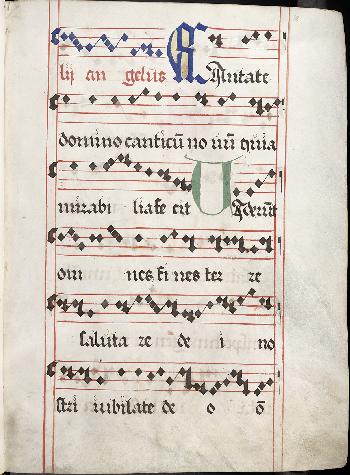 lij an gelus Cantate
domino canticū no uū quia
mirabi lia fe cit Uiderūt
om nes fi nes ter re
saluta re de i no
stri iubilate de o ō